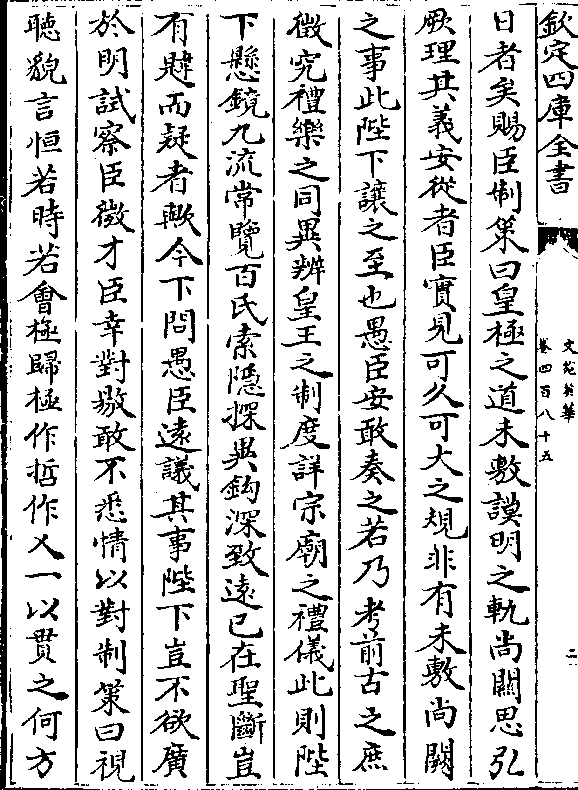 欽定四庫全書
文苑英華
卷四百八十五
二
日者矣賜臣制策曰皇極之道未敷謨明之軌尚闕思弘
厥理其義安從者臣實見可久可大之規非有未敷尚闕
之事此陛下讓之至也愚臣安敢奏之若乃考前古之庶
徵究禮樂之同異辨皇王之制度詳宗廟之禮儀此則陛
下懸鏡九流常覽百氏索隱探異鈎深致遠已在聖斷豈
有疑而疑者歟今下問愚臣遠議其事陛下豈不欲廣
於明試察臣微才臣幸對敭敢不悉情以對制策曰視
聽貌言恒若時若會極歸極作哲作乂一以貫之何方